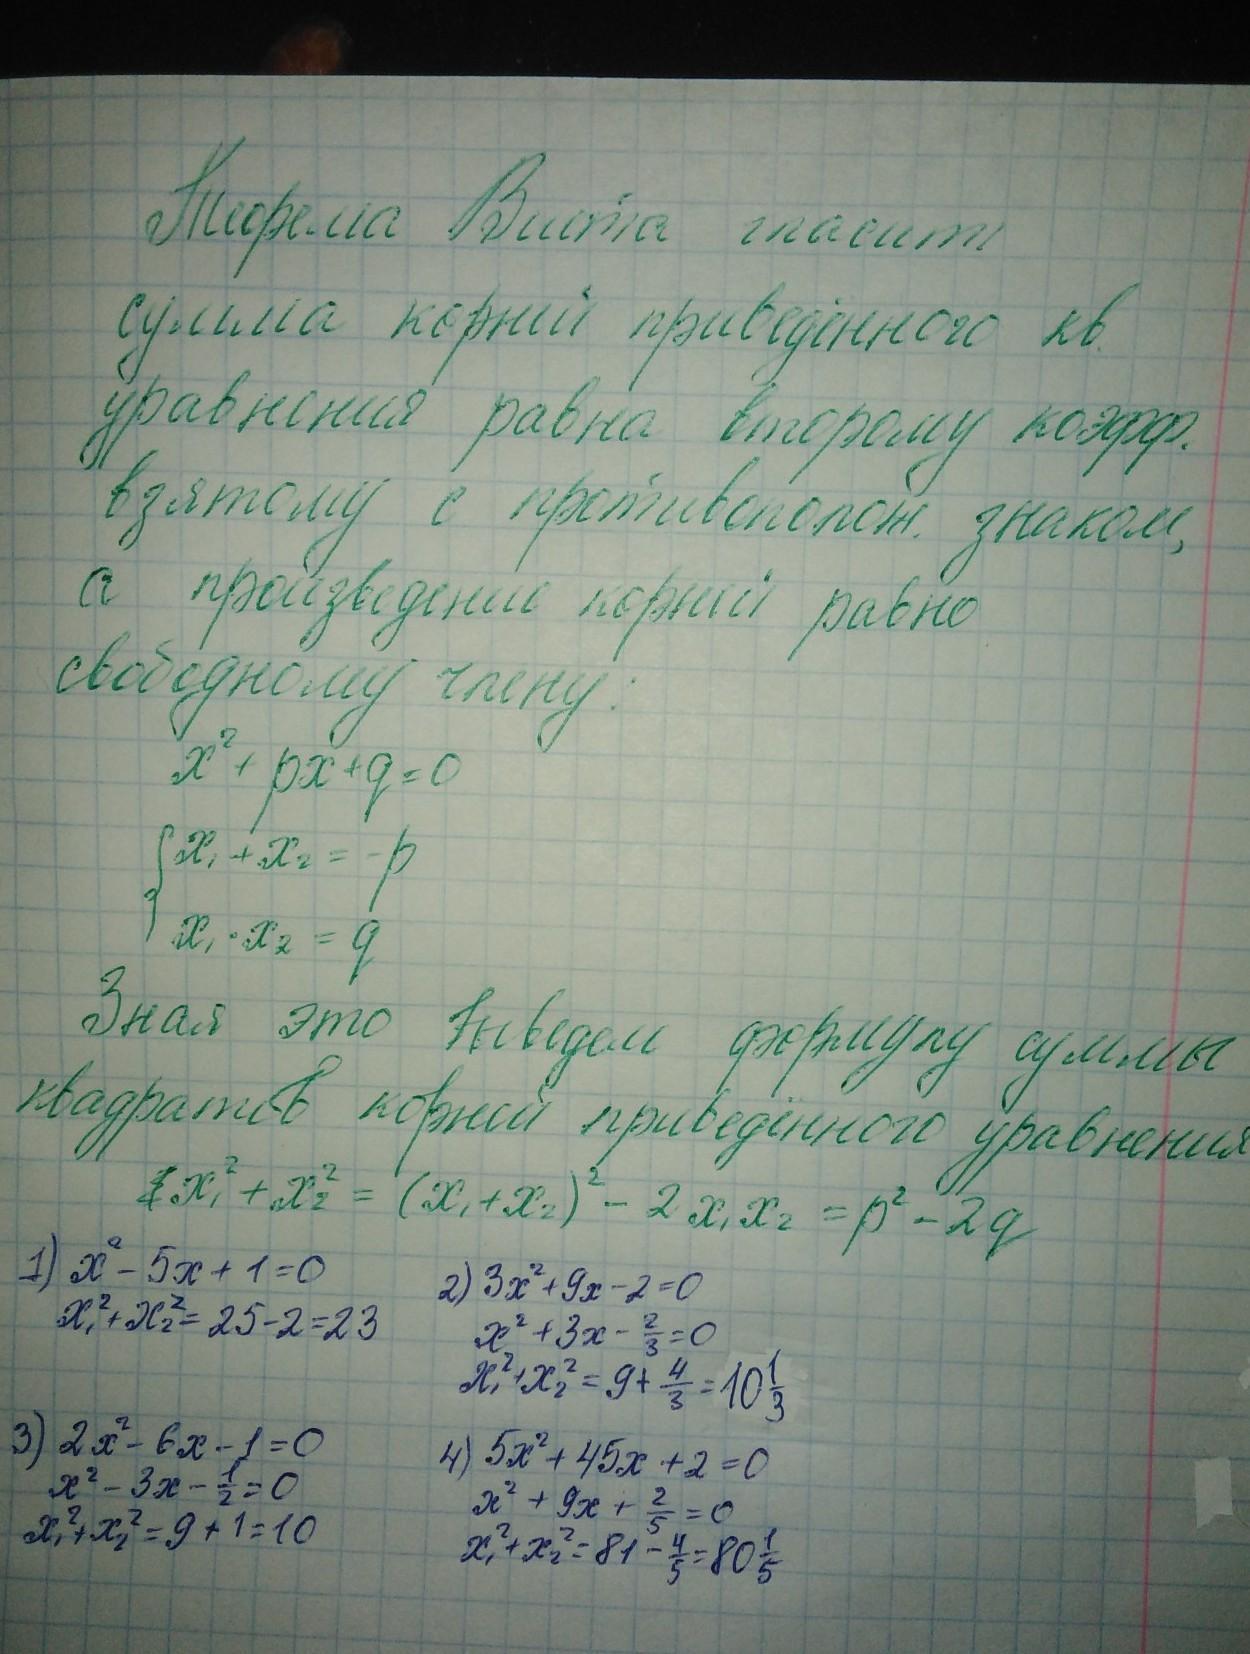 Теорема Виета гласит
сумма корней приведённого кв.
уравнения равна второму коэфф.
взятому с противополож. знаком,
а произведение корней равно
свободному члену:
x² + px + q = 0
{ x₁ + x₂ = -p
x₁ · x₂ = q
Зная это выведем формулу суммы
квадратов корней приведённого уравнения
x₁² + x₂² = (x₁ + x₂)² - 2x₁x₂ = p² - 2q
1) x² - 5x + 1 = 0
x₁² + x₂² = 25 - 2 = 23
2) 3x² + 9x - 2 = 0
x² + 3x - 2/3 = 0
x₁² + x₂² = 9 + 4/3 = 10 1/3
3) 2x² - 6x - 1 = 0
x² - 3x - 1/2 = 0
x₁² + x₂² = 9 + 1 = 10
4) 5x² + 45x + 2 = 0
x² + 9x + 2/5 = 0
x₁² + x₂² = 81 - 4/5 = 80 1/5